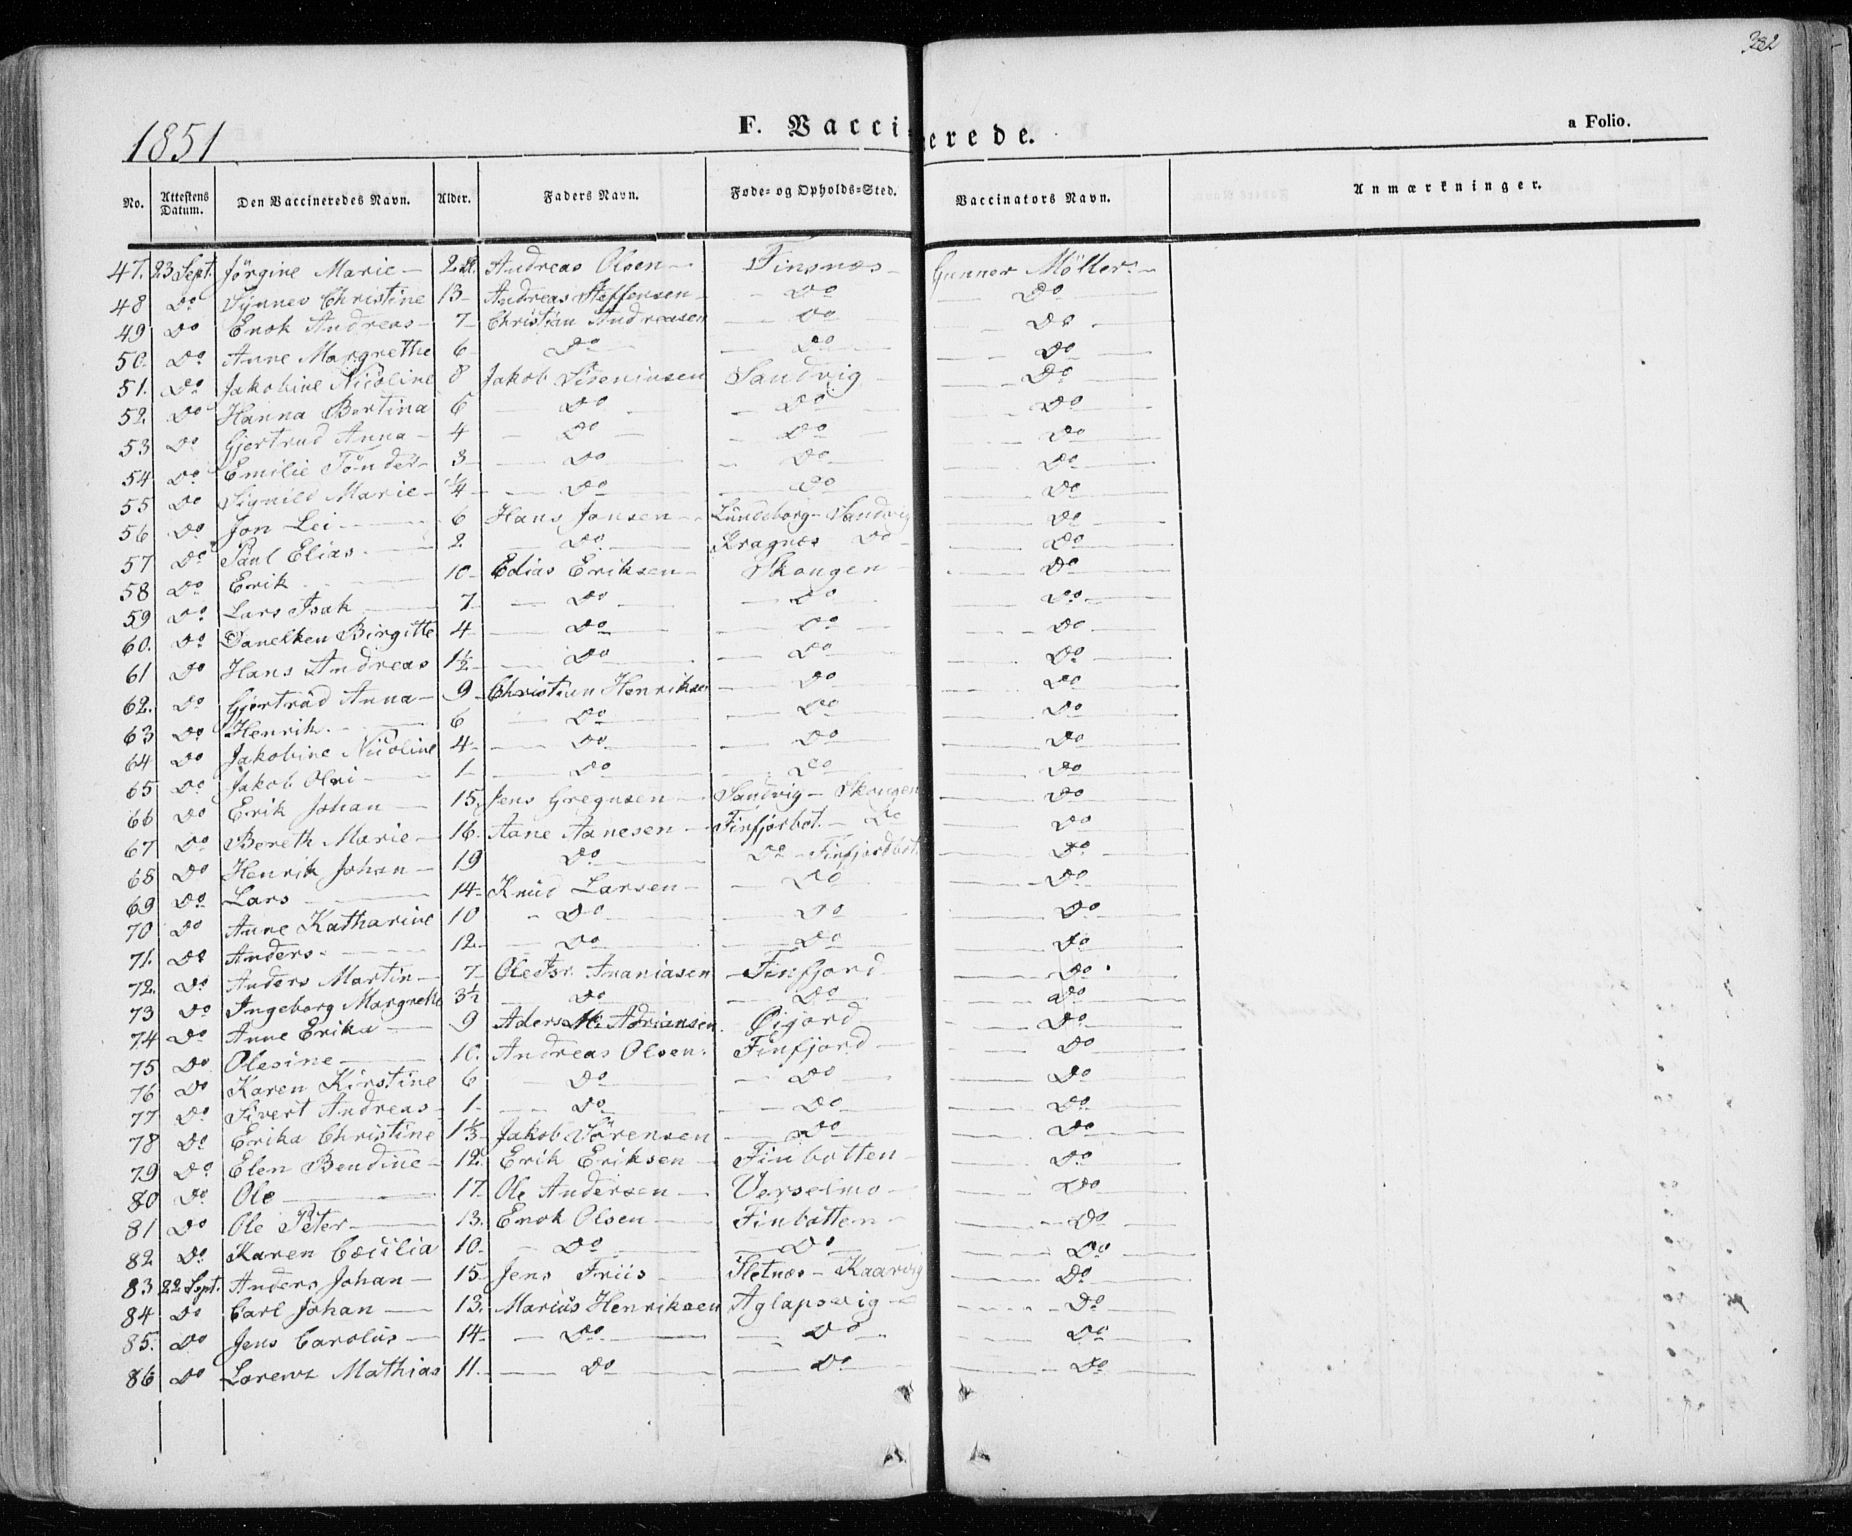 382
1851
F. Vaccinerede.
a Folio.
No. Attestens Datum. Den Vaccineredes Navn. Alder. Faders Navn. Føde- og Opholds-Sted. Vaccinators Navn. Anmærkninger.
47. 23 Sept. Jörgine Marie 2 Andreas Olsen Finsnæs Gunner Möller
48 Do Synnev Christine 13 Andreas Steffensen Do Do
49 Do Enok Andreas 7 Christian Andreasen Do Do
50. Do Anne Margrethe 6 Do Do Do
51. Do Jakobine Nicoline 8 Jakob Sandvig Do
52. Do Hanna Bertina 6 Do Do Do
53 Do Gjertrud Anna 4 Do Do Do
54 Do Emilie Tönder 3 Do Do Do
55 Do Signild Marie 1/4 Do Do Do
56 Do Jon Lei 6 Hans Jansen Lundsborg - Sandvig Do
57 Do Paul Elias 2 Do Kragnæs Do Do
58 Do Erik 10 Edias Eriksen Skougen Do
59 Do Lars Isak 7 Do Do Do
60. Do Danelken Birgitte 4 Do Do Do
61 Do Hans Andreas 1½ Do Do Do
62. Do Gjertrud Anna 9 Christian Henriksen Do Do
63 Do Henrik 6 Do Do Do
64 Do Jakobine Nicoline 4 Do Do Do
65 Do Jakob Olai 1 Do Do Do
66 Do Erik Johan 15 Jens Gregusen Sandvig - Skougen Do
67 Do Bereth Marie 16. Aane Aanesen Finfjorbot. - Do Do
68 Do Henrik Johan 19 Do Do - Finfjordbot. Do
69 Do Lars 14 Knud Larsen Do Do
70 Do Anne Katharine 10 Do Do Do
71. Do Anders 12 Do Do Do
72. Do Anders Martin 7 Ole Isr. Ananiasen Finfjord Do
73 Do Ingeborg Margrethe 3½ Do Do Do
74 Do Anne Erika 9 Aders M. Adriansen Øijord Do
75 Do Olesine 10. Andreas Olsen Finfjord Do
76 Do Karen Kirstine 6 Do Do Do
77 Do Sivert Andreas 1 Do Do Do
78 Do Erika Christine 1⅓ Jakob Sörensen Do Do
79 Do Elen Bendine 12. Erik Eriksen Finbotten Do
80 Do Ole 17. Ole Andersen Verselmo Do
81 Do Ole Peter 13. Enok Olsen Finbotten Do
82 Do Karen Cæcilia 10 Do Do Do
83 22 Sept. Anders Johan 15 Jens Friis Fletnæs - Kaarvig Do
84 Do Carl Johan 13. Marius Henriksen Aglapsvig Do
85. Do Jens Carolus 14 Do Do Do
86 Do Lorenz Mathias 11. Do Do Do